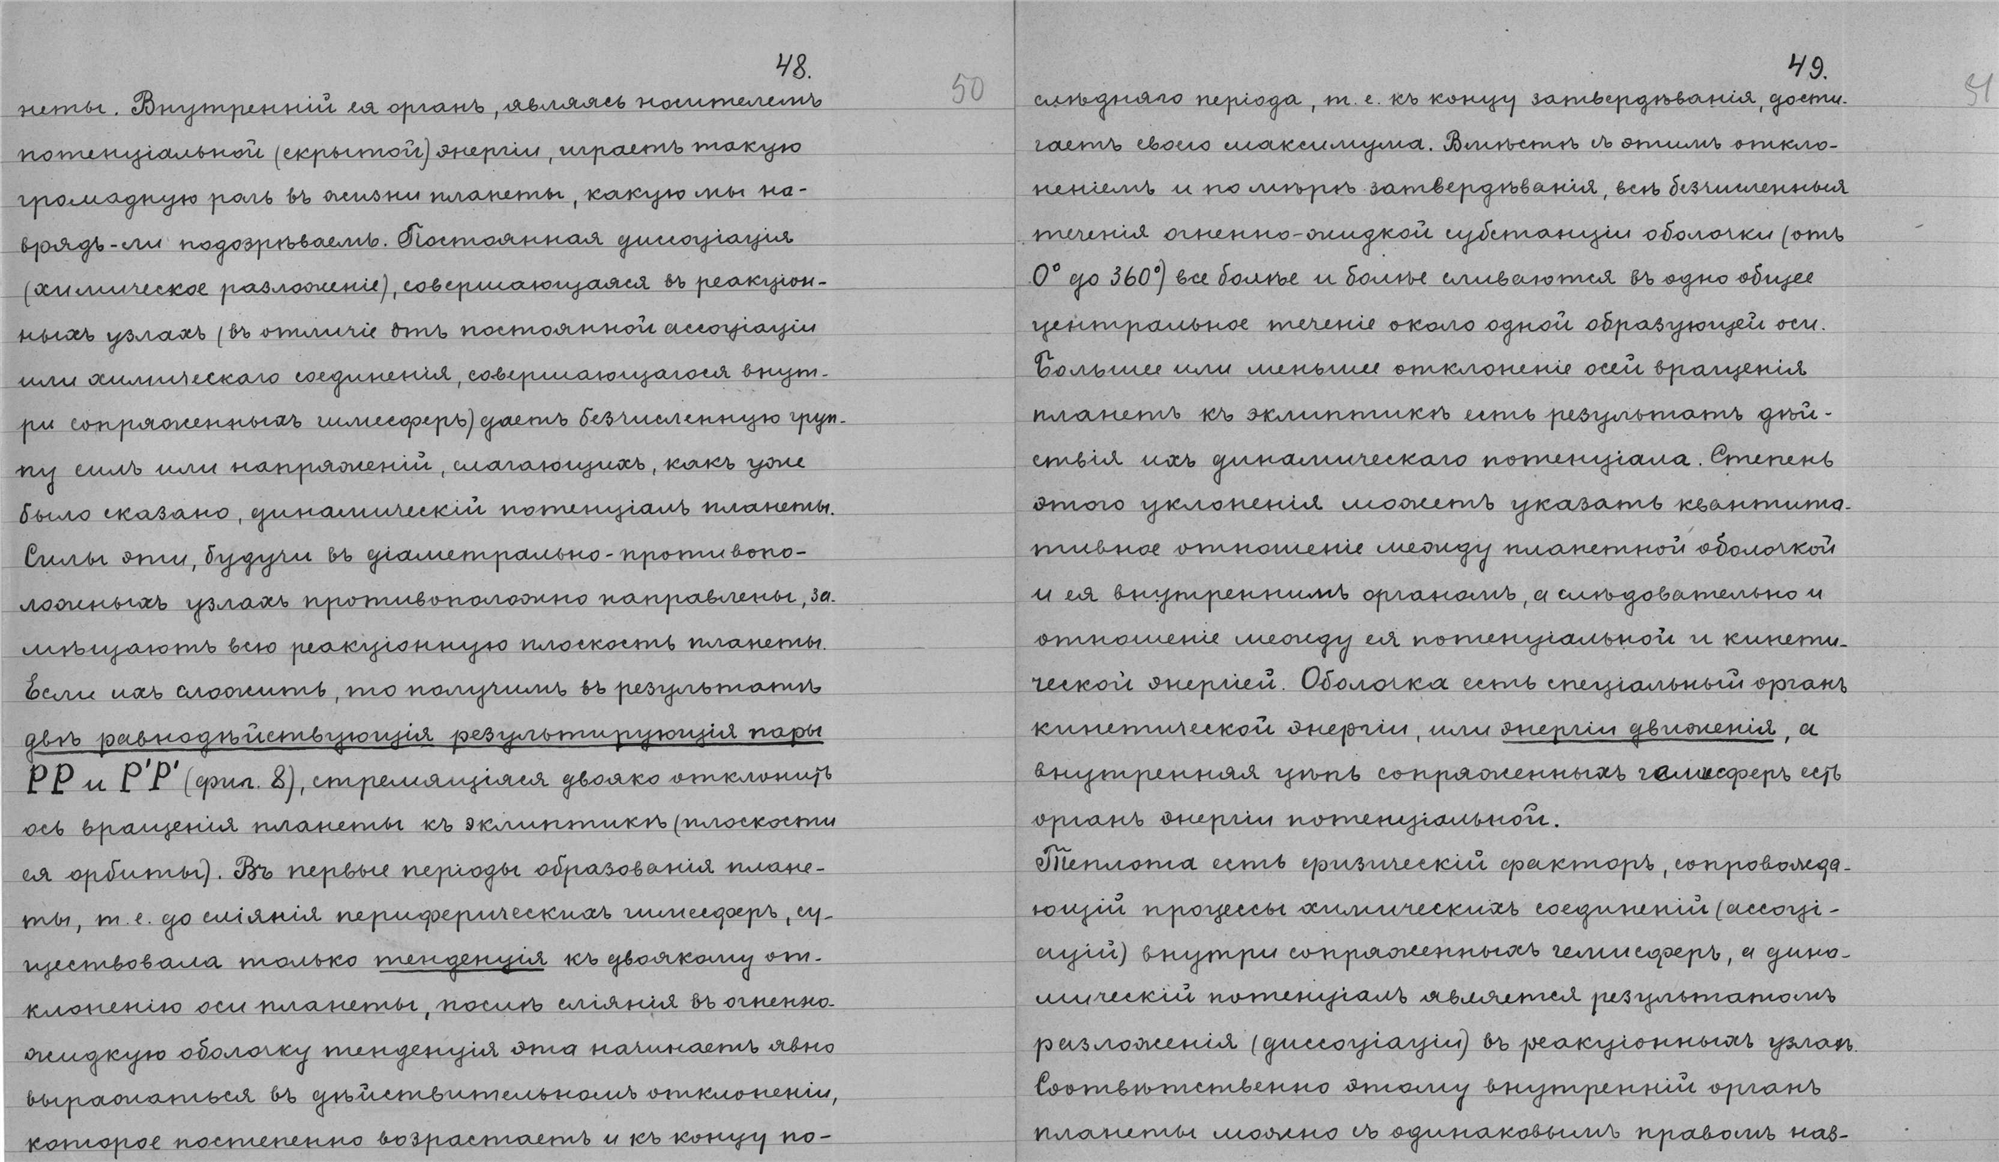 48.
50
неты. Внутренній ея органъ, являясь носителемъ
потенціальной (скрытой) энергіи, играетъ такую
громадную роль въ жизни планеты, какую мы на-
врядъ-ли подозрѣваемъ. Постоянная диссоціація
(химическое разложеніе), совершающаяся въ реакціон-
ныхъ узлахъ (въ отличіе отъ постоянной ассоціаціи
или химическаго соединенія, совершающагося внут-
ри сопряженныхъ гимесферъ) даетъ безчисленную груп-
пу силъ или напряженій, слагающихъ, какъ уже
было сказано, динамическій потенціалъ планеты.
Силы эти, будучи въ діаметрально-противопо-
ложныхъ узлахъ противоположно направлены, за-
мѣщаютъ всю реакціонную плоскость планеты.
Если ихъ сложить, то получимъ въ результатѣ
двѣ равнодѣйствующія результирующія пары
РР и Р'Р' (фиг. 8), стремящіяся двояко отклонить
ось вращенія планеты къ эклиптикѣ (плоскости
ея орбиты). Въ первые періоды образованія плане-
ты, т. е. до сліянія периферическихъ гимесферъ, су-
ществовала только тенденція къ двоякому от-
клоненію оси планеты, послѣ сліянія въ огненно-
жидкую оболочку тенденція эта начинаетъ явно
выражаться въ дѣйствительномъ отклоненіи,
которое постепенно возрастаетъ и къ концу по-
49.
51
слѣдняго періода, т. е. къ концу затвердѣванія, дости-
гаетъ своего максимума. Вмѣстѣ съ этимъ откло-
неніемъ и по мѣрѣ затвердѣванія, всѣ безчисленныя
теченія огненно-жидкой субстанціи оболочки (отъ
0° до 360°) все болѣе и болѣе сливаются въ одно общее
центральное теченіе около одной образующей оси.
Большее или меньшее отклоненіе осей вращенія
планетъ къ эклиптикѣ есть результатъ дѣй-
ствія ихъ динамическаго потенціала. Степень
этого уклоненія можетъ указать квантита-
тивное отношеніе между планетной оболочкой
и ея внутреннимъ органомъ, а слѣдовательно и
отношеніе между ея потенціальной и кинети-
ческой энергіей. Оболочка есть спеціальный органъ
кинетической энергіи, или энергіи движенія, а
внутренняя цѣпь сопряженныхъ гемисферъ есть
органъ энергіи потенціальной.
Теплота есть физическій факторъ, сопровожда-
ющій процессы химическихъ соединеній (ассоці-
ацій) внутри сопряженныхъ гемисферъ, а дина-
мическій потенціалъ является результатомъ
разложенія (диссоціаціи) въ реакціонныхъ узлахъ.
Соотвѣтственно этому внутренній органъ
планеты можно съ одинаковымъ правомъ наз-